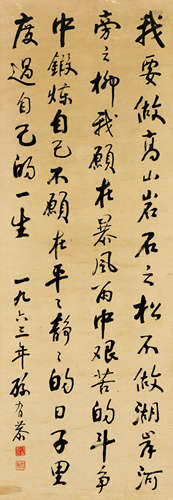 我要做高山岩石之松不做湖岸河
旁之柳我願在暴风雨中艰苦的斗争
中鍛炼自己不願在平之静之的日子里
度过自己的一生 一九六三年孫有恭